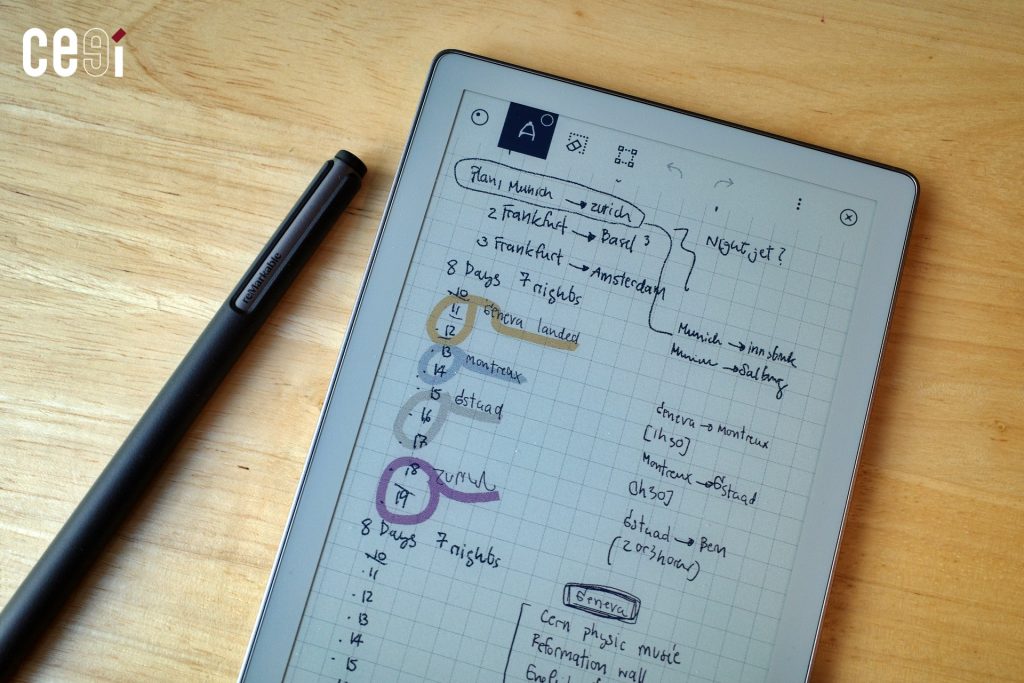 cegi
A
Plan, Munich → zurich
2 Frankfurt → Basel 3
3 Frankfurt → Amsterdam
Nightjet?
8 Days 7 nights
10
11 Geneva landed
12
13
14 montreux
15 Gstaad
16
17
18
19
Munich → innsbruk
→ Salburg
Geneva → Montreux
[1h30]
Montreux → Gstaad
[1h30]
Gstaad → Bern
(2 or 3 hour)
8 Days 7 nights
10
11
12
13
14
15
16
Geneva
Cern physic music
Reformation wall
reMarkable